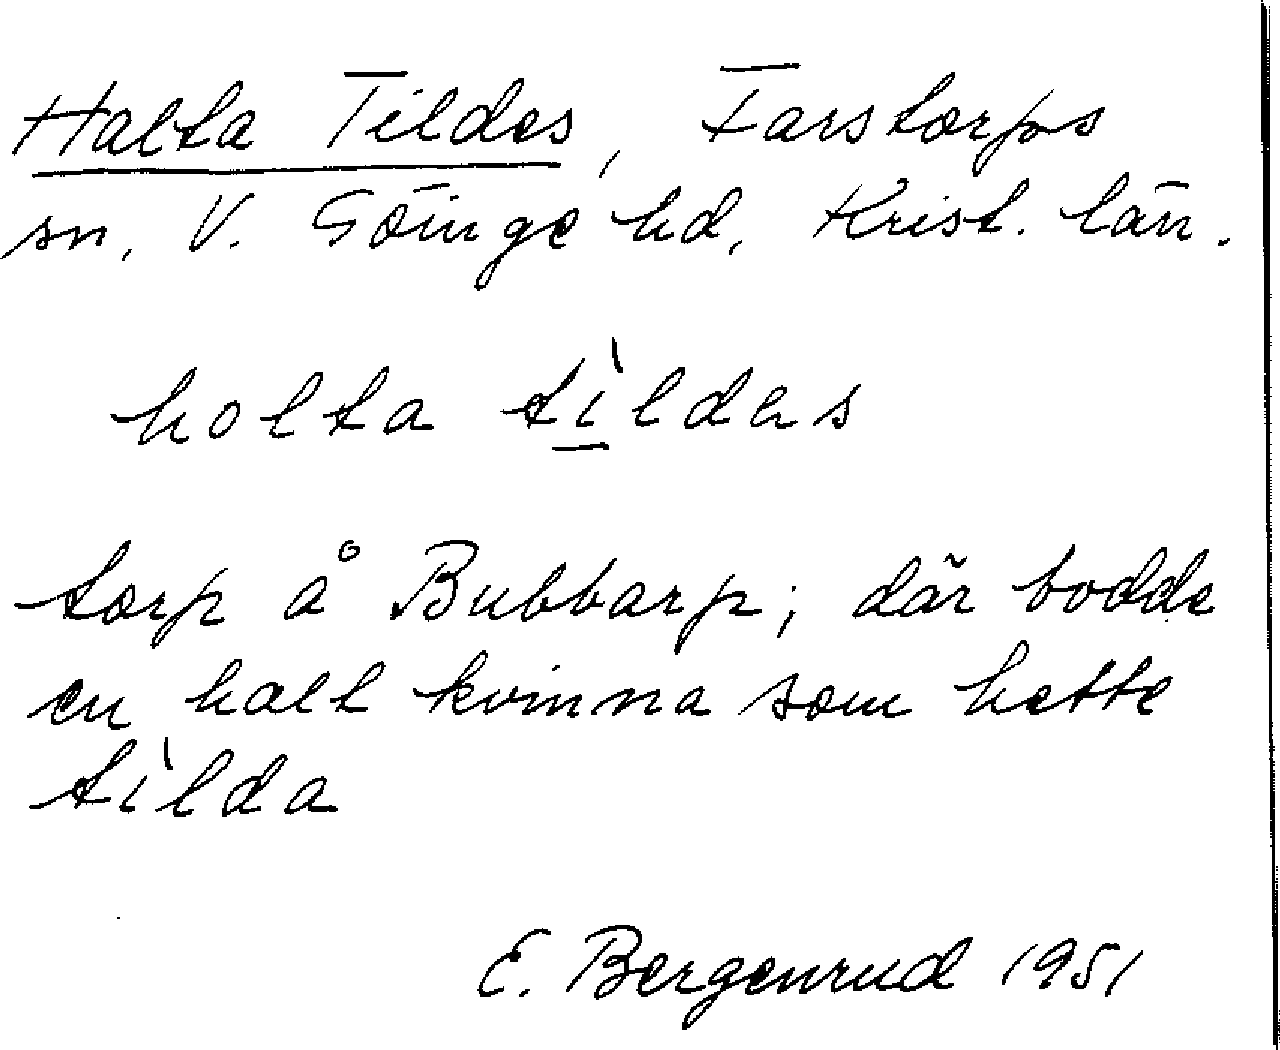 Halta Tildes, Farstorps
sn. V. Göinge hd, Krist. län.
holta tìldas
torp å Bubbarp; där bodde
en halt kvinna som hette
tìlda
E. Bergenrud 1951